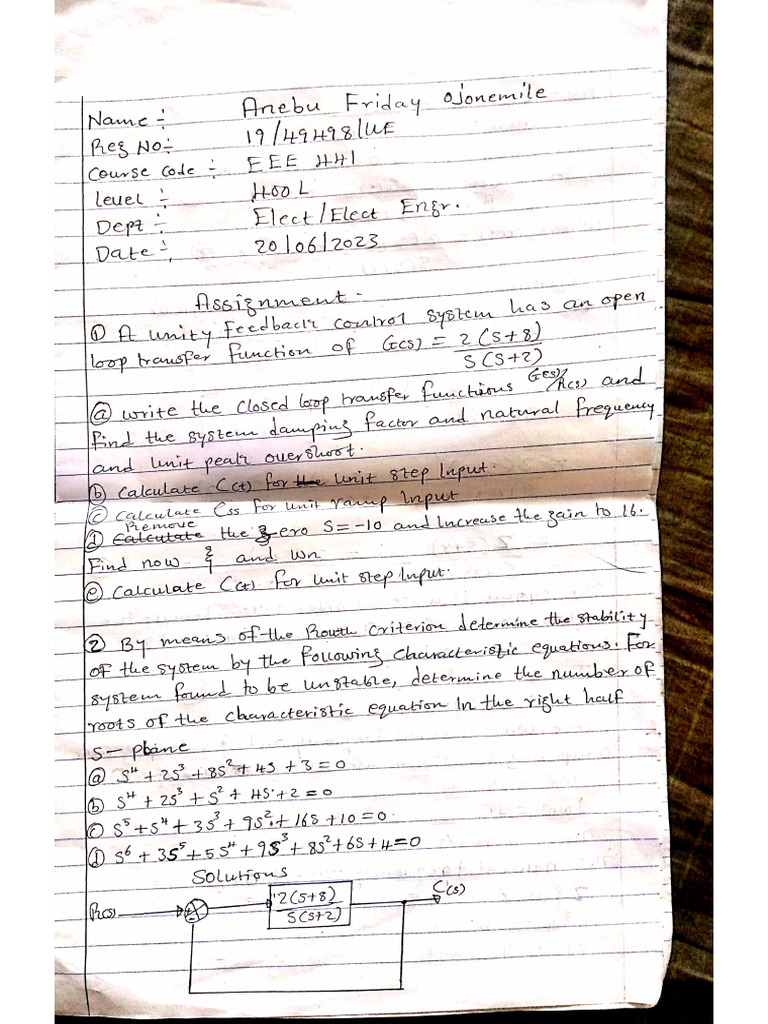 Name :- Anebu Friday Ojonemile
Reg No:- 19/49498/UE
Course Code :- EEE 441
Level :- 400 L
Dept :- Elect/Elect Engr.
Date :- 20/06/2023
Assignment.
① A unity feedback control system has an open
loop transfer function of G(s) = 2(s+8)/S(S+2)
ⓐ write the closed loop transfer functions G(s)/R(s) and
find the system damping factor and natural frequency
and unit peak overshoot.
ⓑ Calculate C(t) for the unit step Input.
ⓒ Calculate ess for unit ramp Input
ⓓ Calculate Remove the zero S=-10 and Increase the gain to 16.
Find now ξ and wn
ⓔ Calculate C(t) for unit step Input.
② By means of the Routh Criterion determine the stability
of the system by the following characteristic equations. For
system found to be unstable, determine the number of
roots of the characteristic equation In the right half
s-plane
ⓐ S⁴ + 2S³ + 8S² + 4S + 3 = 0
ⓑ S⁴ + 2S³ + S² + 4S + 2 = 0
ⓒ S⁵ + S⁴ + 3S³ + 9S² + 16S + 10 = 0
ⓓ S⁶ + 3S⁵ + 5S⁴ + 9S³ + 8S² + 6S + 4 = 0
Solutions
R(s) 2(s+8)/S(S+2) C(s)